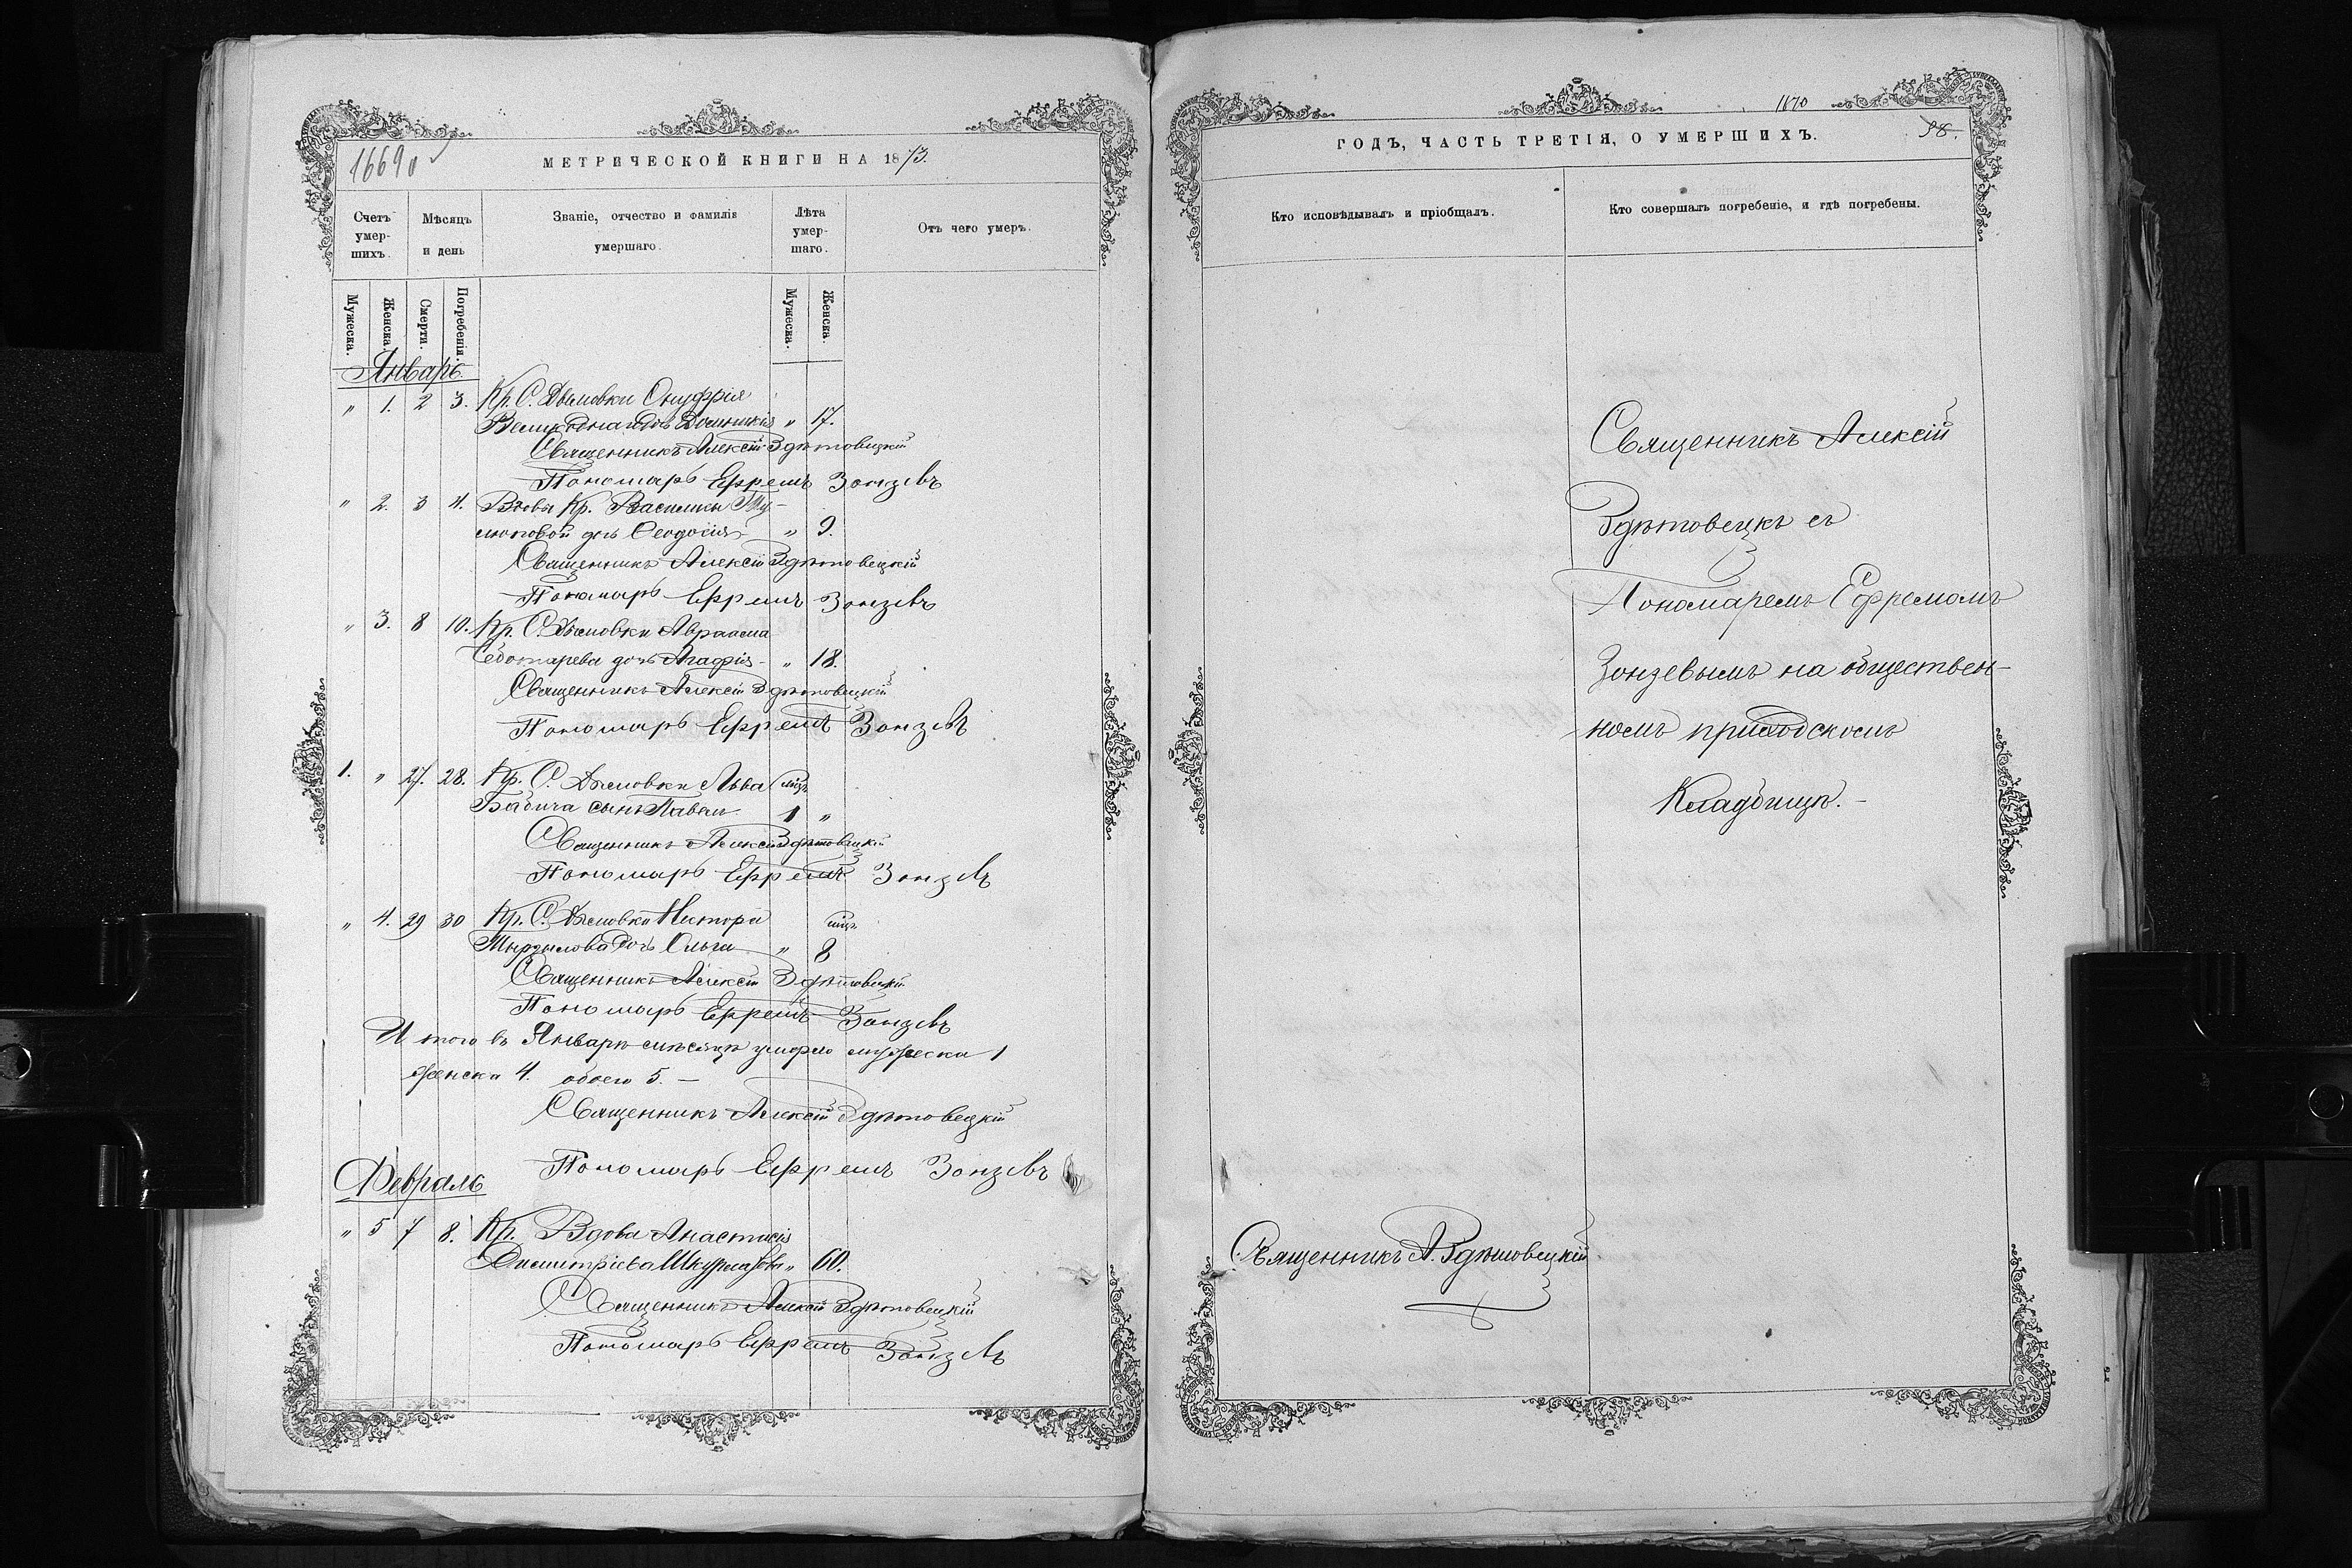 1669 об
МЕТРИЧЕСКОЙ КНИГИ НА 1873.
Счетъ умер-шихъ.
Мѣсяцъ и день
Званіе, отчество и фамилія умершаго.
Лѣта умер-шаго.
Отъ чего умеръ.
Мужеска.
Женска.
Смерти.
Погребенія.
Мужеска.
Женска.
Январь.
" 1. 2 3. Кр. С. Дымовки Онуфрія
Великодна дочь Домникія " 17.
Священникъ Алексій Здѣтовецкій
Пономарь Ефремъ Зонзевъ
" 2. 3 4. Вдовы Кр. Василисы
дочь Ѳеодосія " 9.
Священникъ Алексій Здѣтовецкій
Пономарь Ефремъ Зонзевъ
" 3. 8 10. Кр. С. Дымовки Авраама
Чеботарева дочь Агафія " 18.
Священникъ Алексій Здѣтовецкій
Пономарь Ефремъ Зонзевъ
1. " 27. 28. Кр. С. Дымовки Льва мѣц.
Бабича сынъ Павелъ 1 "
Священникъ Алексій Здѣтовецкій
Пономарь Ефремъ Зонзевъ
" 4. 29 30 Кр. С. Дымовки Нестора мѣц.
дочь Ольга " 8
Священникъ Алексій Здѣтовецкій
Пономарь Ефремъ Зонзевъ
И того въ Январѣ мѣсяцѣ умерло мужеска 1
женска 4. обоего 5. —
Священникъ Алексій Здѣтовецкій
Пономарь Ефремъ Зонзевъ
Февраль
" 5 7 8. Кр. Вдова Анастасія
Димитріева " 60.
Священникъ Алексій Здѣтовецкій
Пономарь Ефремъ Зонзевъ
1670
98.
ГОДЪ, ЧАСТЬ ТРЕТІЯ, О УМЕРШИХЪ.
Кто исповѣдывалъ и пріобщалъ.
Кто совершалъ погребеніе, и гдѣ погребены.
Священникъ Алексій
Здѣтовецкъ съ
Пономаремъ Ефремомъ
Зонзевымъ на обществен-
номъ приходскомъ
Кладбищѣ. —
Священникъ А. Здѣтовецкій